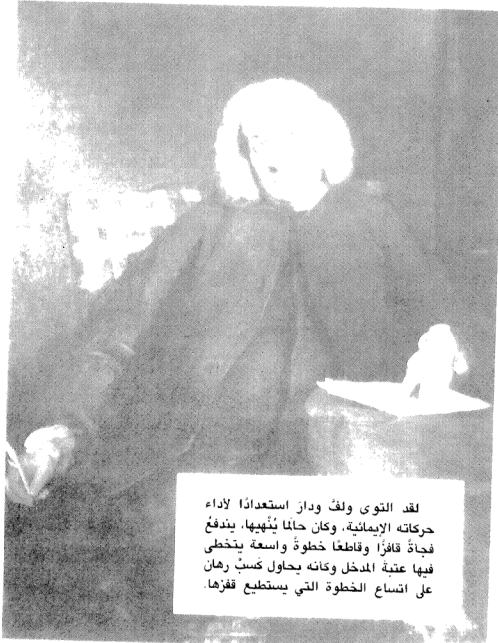 لقد التوى ولفَّ ودارَ استعدادًا لأداء
حركاته الإيمائية، وكان حالَما يُنْهيها، يندفعُ
فجأةً قافزًا وقاطعًا خطوةً واسعة يتخطى
فيها عتبةَ المدخل وكأنه يحاول كَسبْ رهان
على اتساع الخطوة التي يستطيع قفزها.